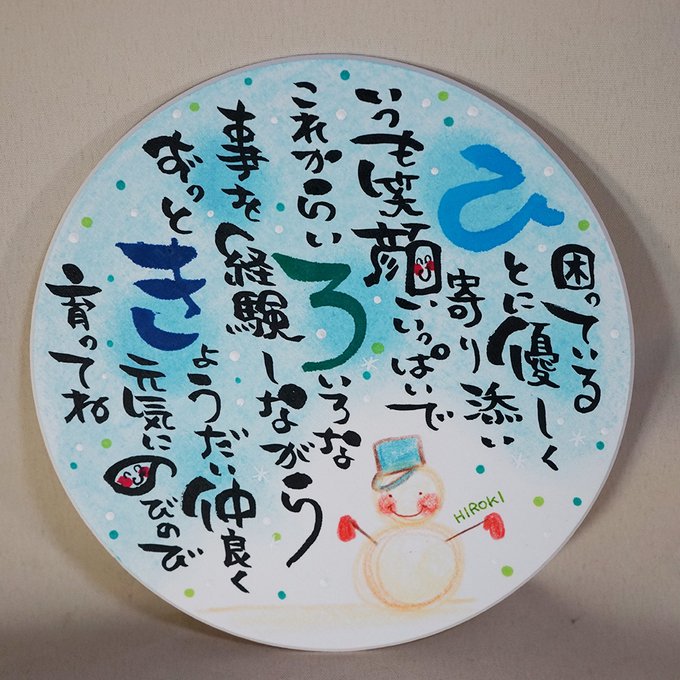 困っている
ひとに優しく
寄り添い
いつも笑顔いっぱいで
これからいろいろな
事を経験しながら
ずっときょうだい仲良く
元気にのびのび
育ってね
HIROKI